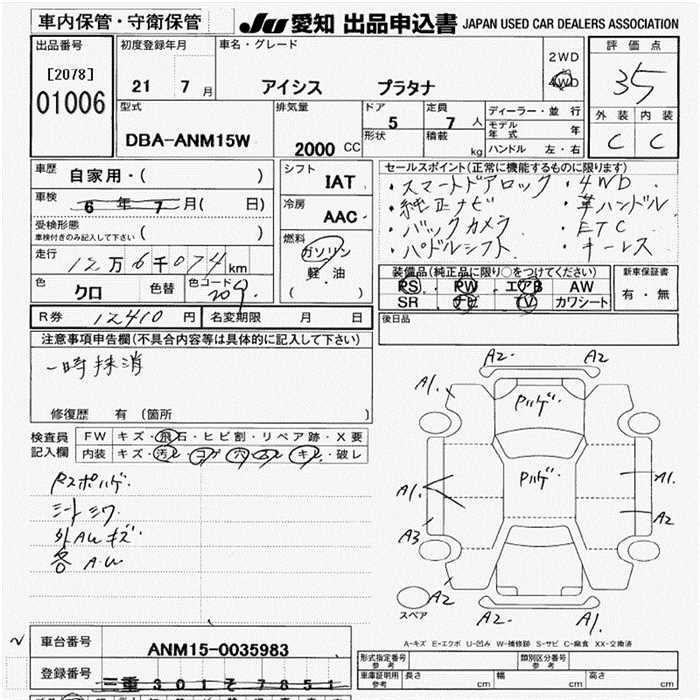 車内保管・守衛保管
JU 愛知 出品申込書 JAPAN USED CAR DEALERS ASSOCIATION
出品番号
[2078]
01006
初度登録年月
21 7 月
車名・グレード
アイシス プラタナ
2WD
4WD
評価点
35
外装 内装
C C
型式
DBA-ANM15W
排気量
2000 CC
ドア
5
定員
7 人
形状
積載
kg
ディーラー・並行
モデル年式 年
ハンドル 左・右
車歴
自家用・( )
車検
6 年 7 月( 日)
受検形態
車検付きのみ記入して下さい ( )
走行
12万6千074 km
色
クロ
色替
色コード
209
シフト
IAT
冷房
AAC
燃料
ガソリン
軽・油
( )
セールスポイント(正常に機能するものに限ります)
・スマートドアロック ・4WD
・純正ナビ ・革ハンドル
・バックカメラ ・ETC
・パドルシフト ・キーレス
装備品(純正品に限り○をつけてください)
PS PW エアB AW
SR ナビ TV カワシート
新車保証書
有・無
R券 12410 円
名変期限 月 日
後日品
注意事項申告欄(不具合内容等は具体的に記入して下さい)
一時抹消
修復歴 有(箇所 )
検査員記入欄
FW キズ・飛石・ヒビ割・リペア跡・X要
内装 キズ・汚レ・コゲ・穴・スレ・キレ・破レ
シートシワ
外AWキズ
各 A.W
A2 A2
A1
A1
A3
A1
A2
A2
A2 A1
スペア
A-キズ E-エクボ U-凹み W-補修跡 S-サビ C-腐食 XX-交換済
車台番号
ANM15-0035983
登録番号
三重 301 そ 7851
形式指定番号 参考
類別区分番号 参考
車庫証明用 参考
長さ cm
幅 cm
高さ cm